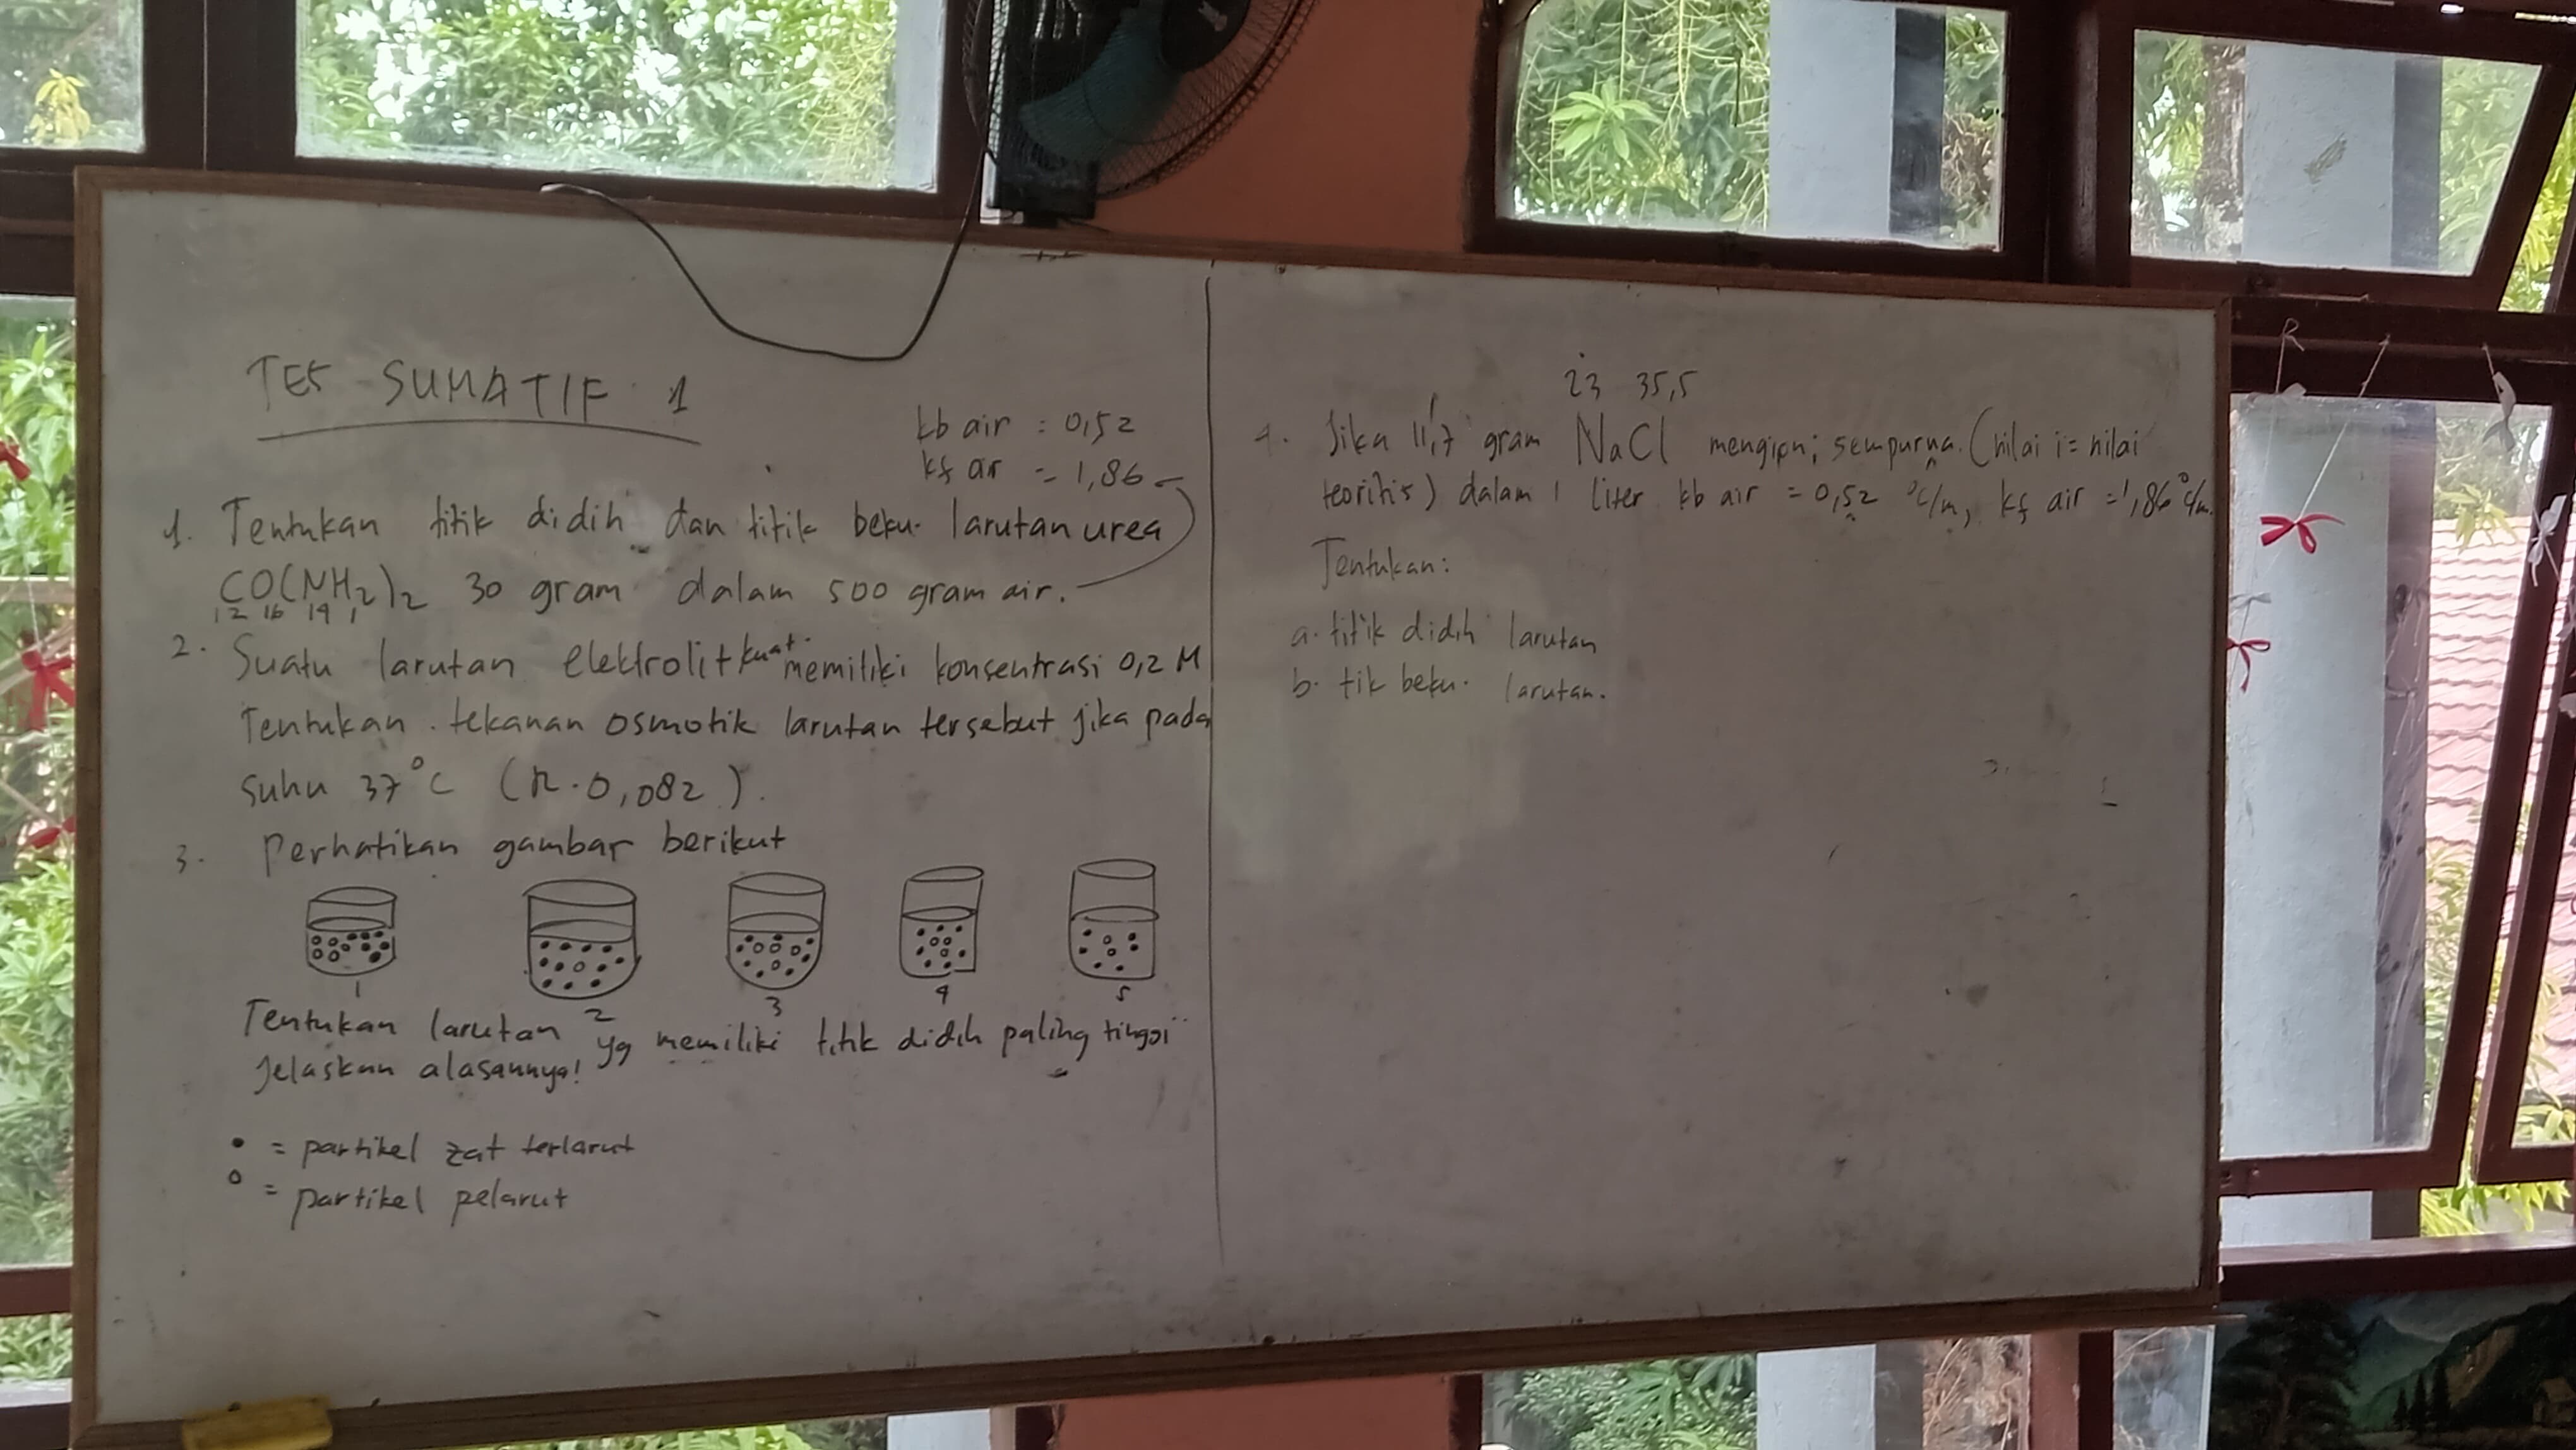 TES SUMATIF 1
kb air : 0,52
kf air = 1,86
1. Tentukan titik didih dan titik beku larutan urea
CO(NH2)2 30 gram dalam 500 gram air.
12 16 14 1
2. Suatu larutan elektrolit kuat memiliki konsentrasi 0,2 M
Tentukan tekanan osmotik larutan tersebut jika pada
suhu 37°C (R.0,082).
3. Perhatikan gambar berikut
1 2 3 4 5
Tentukan larutan yg memiliki titik didih paling tinggi
Jelaskan alasannya!
• = partikel zat terlarut
o = partikel pelarut
23 35,5
4. Jika 11,7 gram NaCl mengion; sempurna. (nilai i = nilai
teoritis) dalam 1 liter kb air = 0,52 °C/m, kf air = 1,86°C/m.
Tentukan:
a. titik didih larutan
b. tik beku. larutan.